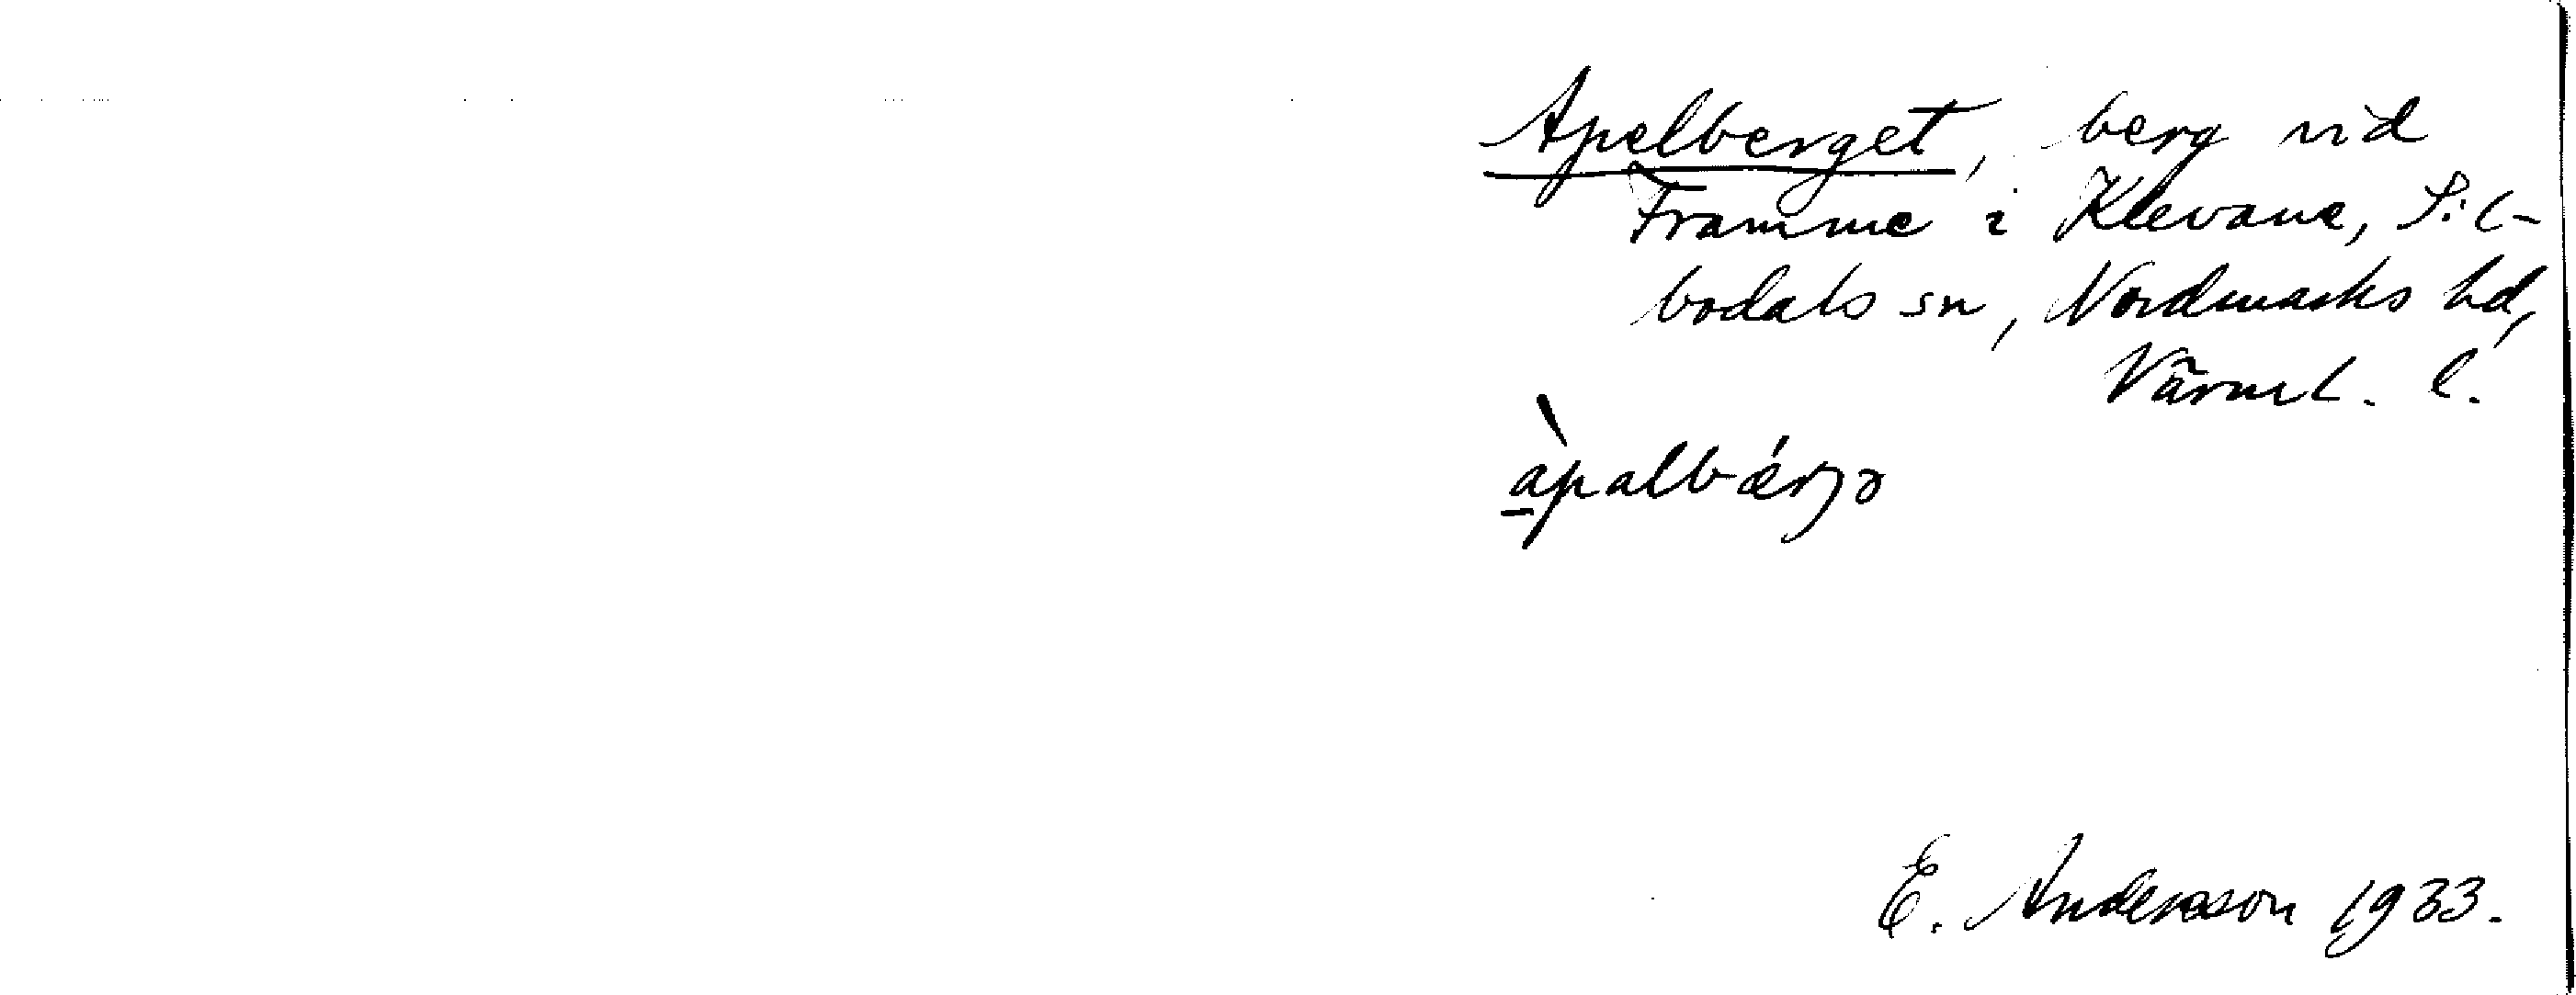 Apelberget, berg vid
Framme i Klevane, Sil-
bodals sn, Nordmarks hd,
Värml. l.
àpalbǽrjə
E. Andersson 1933.